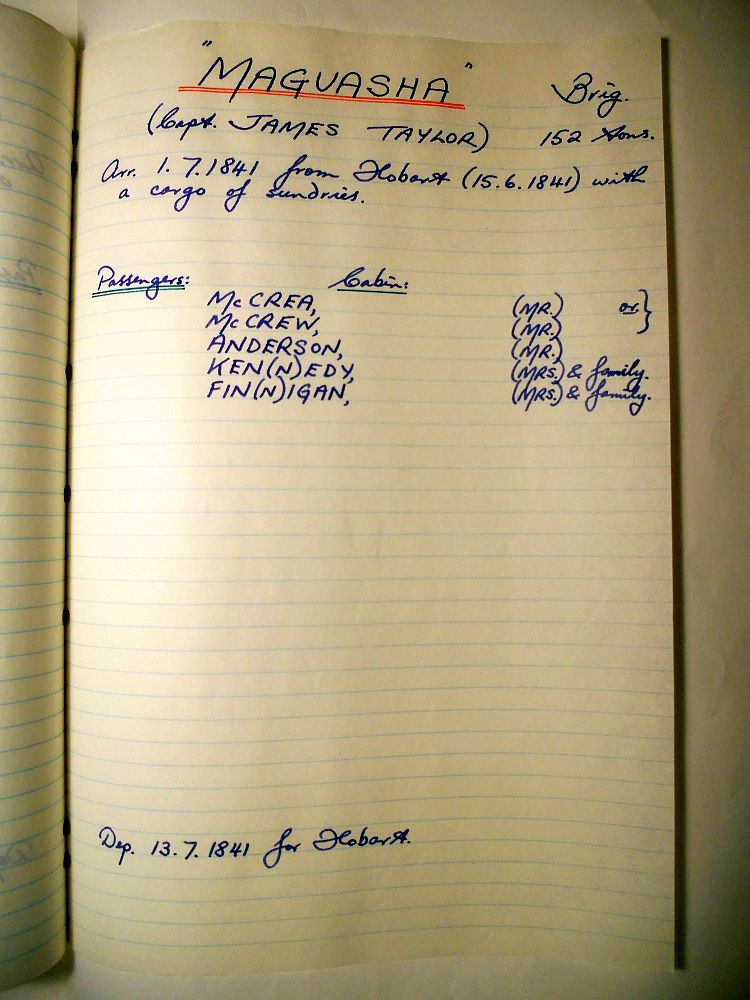 "MAGUASHA" Brig.
(Capt. JAMES TAYLOR) 152 tons.
Arr. 1.7.1841 from Hobart (15.6.1841) with
a cargo of sundries.
Passengers: Cabin:
McCREA, (MR.) or }
McCREW, (MR.)
ANDERSON, (MR.)
KEN(N)EDY, (MRS.) & family.
FIN(N)IGAN, (MRS.) & family.
Dep. 13.7.1841 for Hobart.